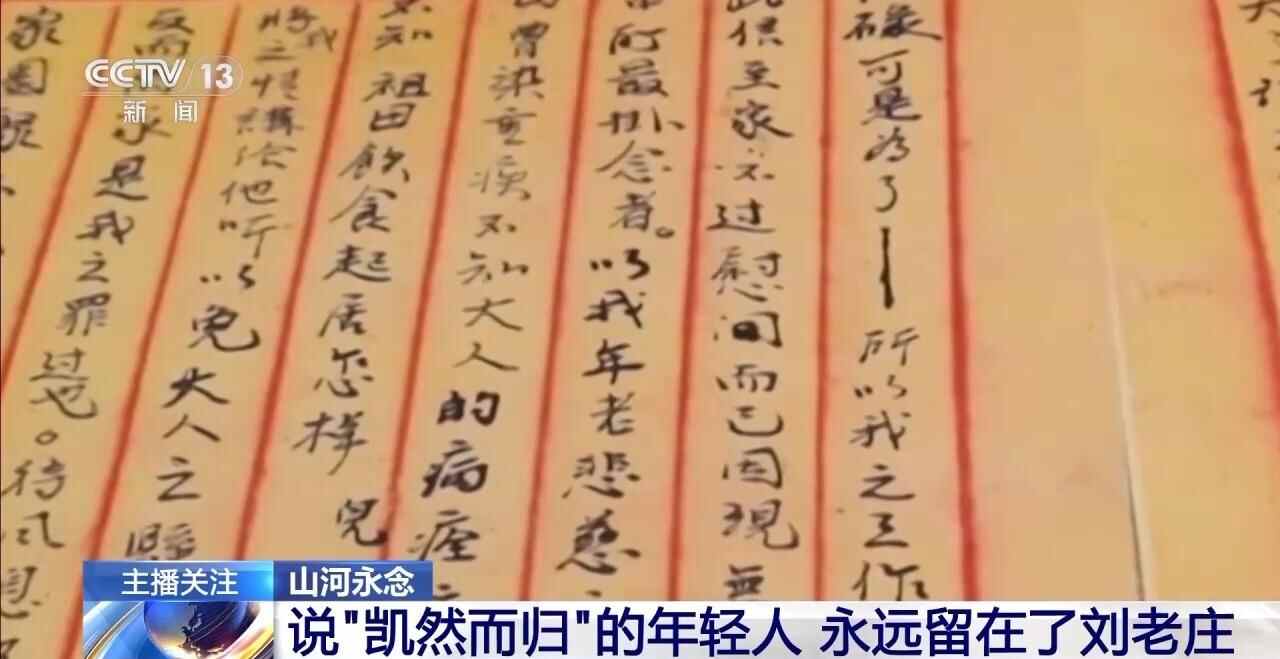 碌可是为了——所以我之工作
此信至家不过慰问而已因现无
所最挂念者。以我年老悲慈
曾染重疾不知大人的病痊
知祖田饮食起居怎样 兒
将我之情講给他听以免大人之
反而 家是我之罪过也。待
家園
CCTV 13
新闻
主播关注
山河永念
说"凯然而归"的年轻人 永远留在了刘老庄